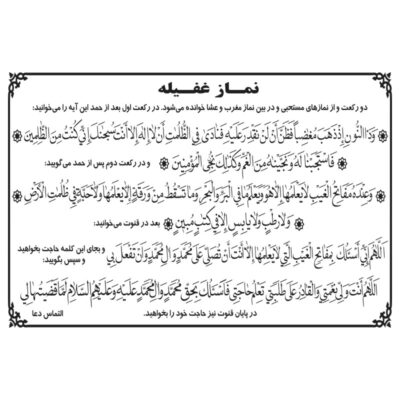 نماز غفیله
دو رکعت و از نمازهای مستحبی و در بین نماز مغرب و عشا خوانده می‌شود. در رکعت اول بعد از حمد این آیه را می‌خوانید:
وَذَا النُّونِ إِذْ ذَهَبَ مُغَاضِبًا فَظَنَّ أَنْ لَنْ نَقْدِرَ عَلَيْهِ فَنَادَىٰ فِي الظُّلُمَاتِ أَنْ لَا إِلَٰهَ إِلَّا أَنْتَ سُبْحَانَكَ إِنِّي كُنْتُ مِنَ الظَّالِمِينَ
فَاسْتَجَبْنَا لَهُ وَنَجَّيْنَاهُ مِنَ الْغَمِّ وَكَذَٰلِكَ نُنْجِي الْمُؤْمِنِينَ و در رکعت دوم پس از حمد می گویید:
وَعِنْدَهُ مَفَاتِحُ الْغَيْبِ لَا يَعْلَمُهَا إِلَّا هُوَ وَيَعْلَمُ مَا فِي الْبَرِّ وَالْبَحْرِ وَمَا تَسْقُطُ مِنْ وَرَقَةٍ إِلَّا يَعْلَمُهَا وَلَا حَبَّةٍ فِي ظُلُمَاتِ الْأَرْضِ
وَلَا رَطْبٍ وَلَا يَابِسٍ إِلَّا فِي كِتَابٍ مُبِينٍ بعد در قنوت می‌خوانید:
اَللّٰهُمَّ اِنّي اَسْئَلُكَ بِمَفَاتِحِ الْغَيْبِ الَّتي لَا يَعْلَمُهَا اِلَّا اَنْتَ اَنْ تُصَلِّيَ عَلٰی مُحَمَّدٍ وَ الِ مُحَمَّدٍ وَ اَنْ تَفْعَلَ بي و بجای این کلمه حاجت بخواهید
و سپس بگویید:
اَللّٰهُمَّ اَنْتَ وَلِيُّ نِعْمَتي وَ الْقَادِرُ عَلٰی طَلِبَتي تَعْلَمُ حَاجَتي فَاَسْئَلُكَ بِحَقِّ مُحَمَّدٍ وَ الِ مُحَمَّدٍ عَلَيْهِ وَ عَلَيْهِمُ السَّلَامُ لَمَّا قَضَيْتَهَا لي
در پایان قنوت نیز حاجت خود را بخواهید.
التماس دعا